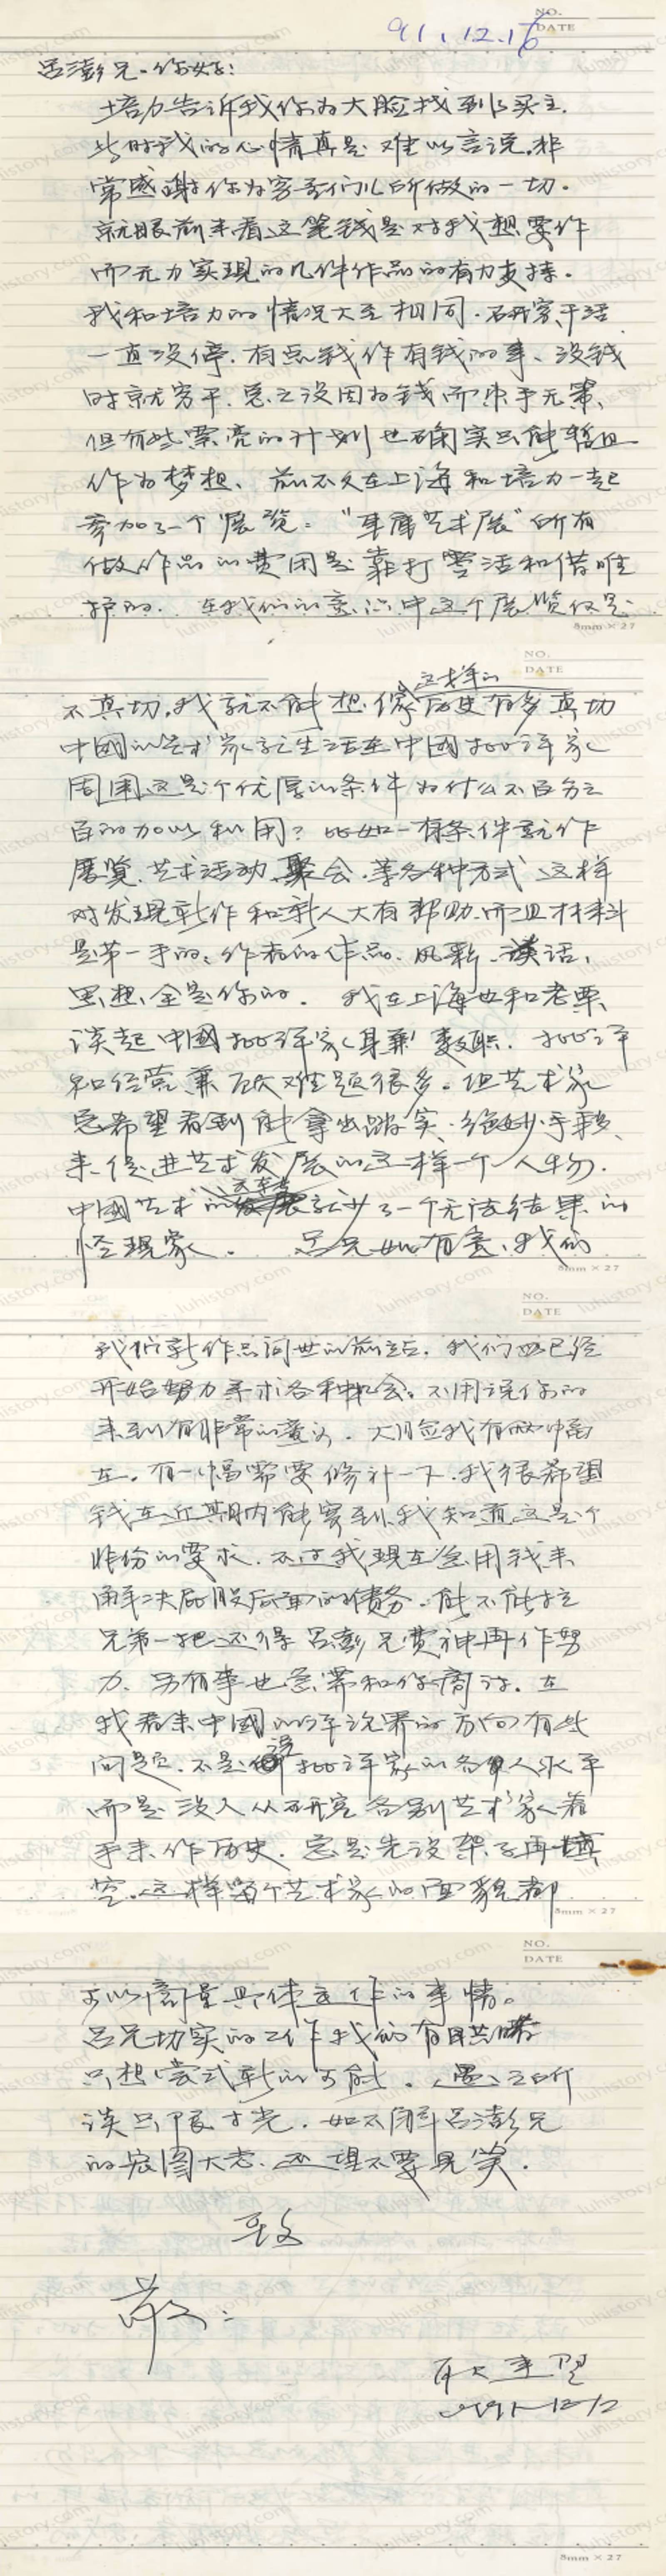 NO.
DATE
91.12.16
吕澎兄.你好:
培力告诉我你为大脸找到了买主.
此时我的心情真是难以言说.非
常感谢你为穷哥们儿所做的一切.
就眼前来看这笔钱是对我想要作
而无力实现的几件作品的有力支持.
我和培力的情况大至相同.研究干活
一直没停.有点钱作有钱的事、没钱
时就穷干.总之没因为钱而束手无策、
但有些漂亮的计划也确实只能暂且
作为梦想、前不久在上海和培力一起
参加了一个展览:"车库艺术展"所有
做作品的费用是靠打零活和借维
护的. 在我们的意识中这个展览仅是
8mm × 27
NO.
DATE
不真切.我就不能想像这样的历史有多真切
中國的艺术家就生活在中國批评家
周围这是个优厚的条件为什么不百分之
百的加以利用? 比如一有条件就作
展览.艺术活动.聚会.等各种方式 这样
对发现新作和新人大有帮助.而且材料
是第一手的、作者的作品、风彩、谈话、
思想全是你的. 我在上海也和老栗
谈起中國批评家身兼数职. 批评
和经营兼顾难题很多.但艺术家
总希望看到能拿出踏实、绝妙手段、
来促进艺术发展的这样一个人物.
中國艺术的就少了一个无法结果的
怪现象. 吕兄如有意、我们
8mm × 27
NO.
DATE
我们新作品问世的前后, 我们也已经
开始努力寻求各种机会. 不用说你的
来到有非常的意义. 大脸我有两幅
在. 有一幅需要修补一下.我很希望
钱在近期内能寄到.我知道这是个
非份的要求. 不过我现在急用钱来
解决屁股后面的债务.能不能拉
兄弟一把还得吕澎兄费神再作努
力. 另有事也急需和你商讨. 在
我看来中國的评论界的方向有些
问题. 不是说批评家的各人水平
而是没人从研究各别艺术家着
手来作历史. 总是先设架子再填
空.这样每个艺术家的面貌都
8mm × 27
NO.
DATE
可以商量具体运作的事情.
吕兄切实的工作我们有目共睹
只想尝试新的可能. 愚之所
谈只限寸光. 如不解吕澎兄
的宏图大志. 还望不要見笑.
致
敬:
耿建翌
1991-12/2
8mm × 27